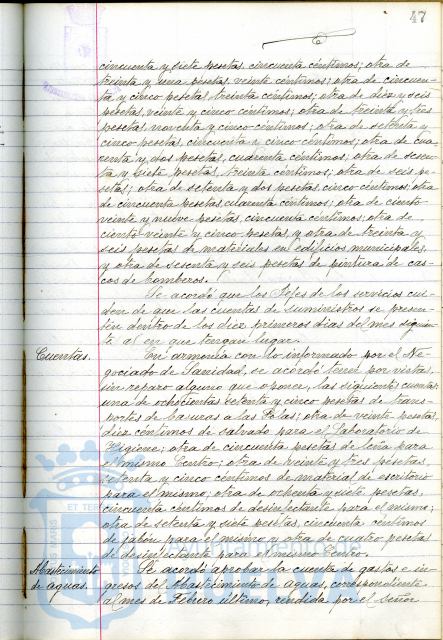 47
cincuenta y siete pesetas, cincuenta céntimos; otra de
treinta y una pesetas, veinte céntimos; otra de cincuen-
ta y cinco pesetas, treinta céntimos; otra de diez y seis
pesetas, veinte y cinco céntimos; otra de treinta y tres
pesetas noventa y cinco céntimos; otra de setenta y
cinco pesetas, cincuenta y cinco céntimos; otra de cua-
renta y dos pesetas, cuarenta céntimos; otra de sesen-
ta y siete pesetas, treinta céntimos; otra de seis pe-
setas; otra de setenta y dos pesetas, cinco céntimos; otra
de cincuenta pesetas, cuarenta céntimos; otra de ciento
veinte y nueve pesetas, cincuenta céntimos; otra de
ciento veinte y cinco pesetas, y otra de treinta y
seis pesetas de materiales en edificios municipales,
y otra de sesenta y seis pesetas de pintura de cas-
cos de bomberos.
Se acordó que los Jefes de los servicios cui-
den de que las cuentas de suministros se presen-
ten dentro de los diez primeros días del mes siguien-
te al en que tengan lugar.
Cuentas.
En armonía con lo informado por el Ne-
gociado de Sanidad, se acordó tener por vistas,
sin reparo alguno que oponer, las siguientes cuentas:
una de ochocientas setenta y cinco pesetas de trans-
portes de basuras a las Islas; otra de veinte pesetas,
diez céntimos de salvado para el Laboratorio de
Higiene; otra de cincuenta pesetas de leña para
el mismo Centro; otra de veinte y tres pesetas,
setenta y cinco céntimos de material de escritorio
para el mismo; otra de ochenta y siete pesetas,
cincuenta céntimos de desinfectante para el mismo;
otra de setenta y siete pesetas, cincuenta céntimos
de jabón para el mismo y otra de cuatro pesetas
de desinfectante para el mismo Centro.
Abastecimiento
de aguas.
Se acordó aprobar la cuenta de gastos e in-
gresos del Abastecimiento de aguas, correspondiente
al mes de Febrero último, rendida por el Señor